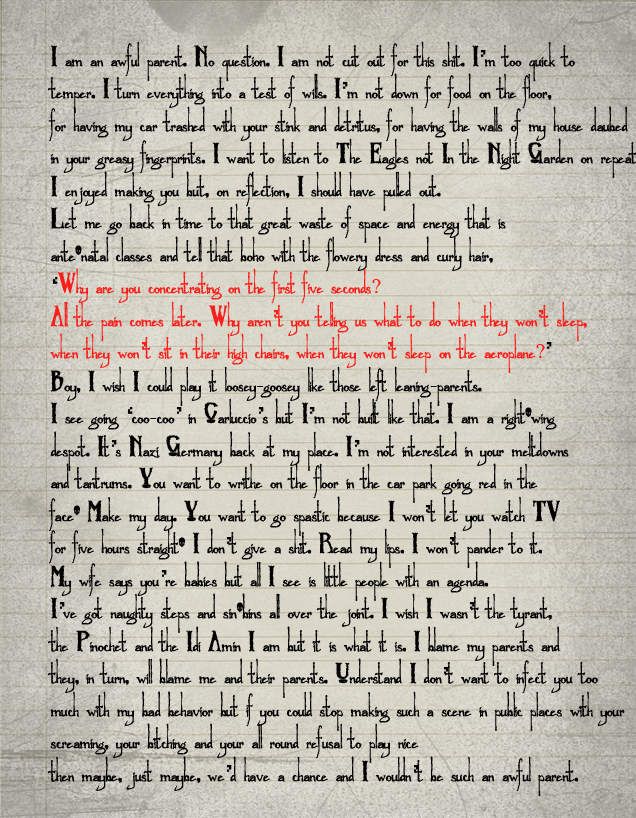 I am an awful parent. No question. I am not cut out for this shit. I'm too quick to
temper. I turn everything into a test of wills. I'm not down for food on the floor,
for having my car trashed with your stink and detritus, for having the walls of my house daubed
in your greasy fingerprints. I want to listen to The Eagles not In the Night Garden on repeat
I enjoyed making you but, on reflection, I should have pulled out.
Let me go back in time to that great waste of space and energy that is
ante-natal classes and tell that boho with the flowery dress and curly hair,
"Why are you concentrating on the first five seconds?
All the pain comes later. Why aren't you telling us what to do when they won't sleep,
when they won't sit in their high chairs, when they won't sleep on the aeroplane?"
Boy, I wish I could play it loosey-goosey like those left leaning-parents.
I see going 'coo-coo' in Carluccio's but I'm not built like that. I am a right-wing
despot. It's Nazi Germany back at my place. I'm not interested in your meltdowns
and tantrums. You want to writhe on the floor in the car park going red in the
face? Make my day. You want to go spastic because I won't let you watch TV
for five hours straight? I don't give a shit. Read my lips. I won't pander to it.
My wife says you're babies but all I see is little people with an agenda.
I've got naughty steps and sin-bins all over the joint. I wish I wasn't the tyrant,
the Pinochet and the Idi Amin I am but it is what it is. I blame my parents and
they, in turn, will blame me and their parents. Understand I don't want to infect you too
much with my bad behavior but if you could stop making such a scene in public places with your
screaming, your bitching and your all round refusal to play nice
then maybe, just maybe, we'd have a chance and I wouldn't be such an awful parent.